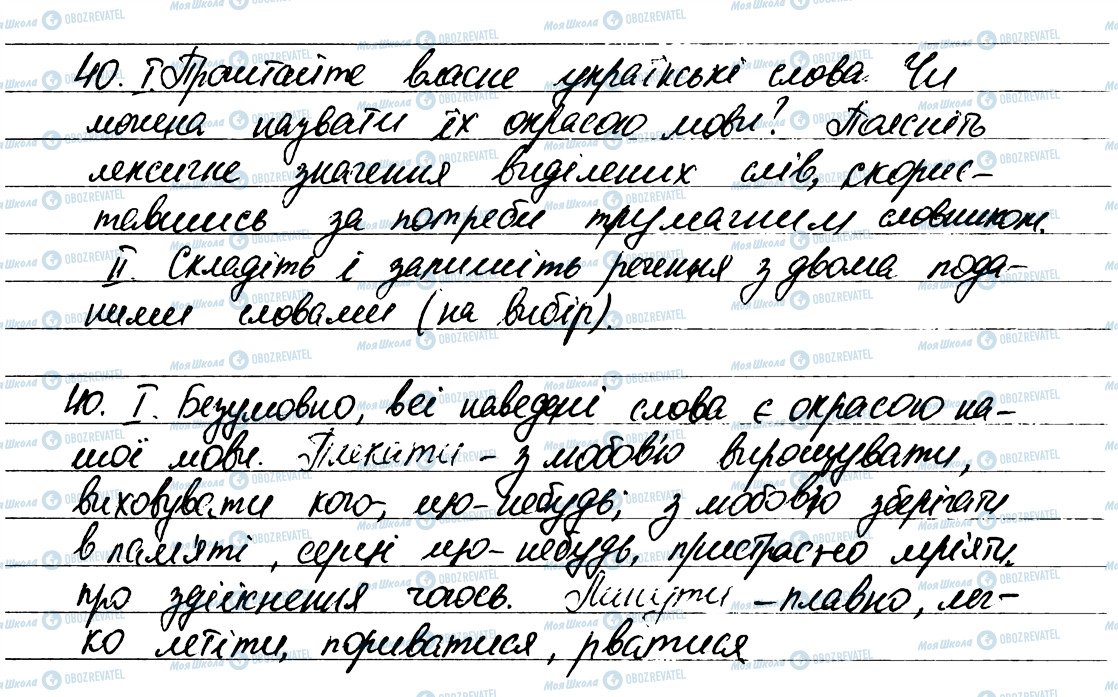 40. I. Прочитайте власне українські слова. Чи
можна назвати їх окрасою мови? Поясніть
лексичне значення виділених слів, скорис-
тавшись за потреби тлумачним словником.
II. Складіть і запишіть речення з двома пода-
ними словами (на вибір).
40. I. Безумовно, всі наведені слова є окрасою на-
шої мови. Плекати - з любов'ю вирощувати,
виховувати кого-, що-небудь; з любов'ю зберігати
в пам'яті, серці що-небудь, пристрасно мріяти
про здійснення чогось. Линути - плавно, лег-
ко летіти, пориватися, рватися